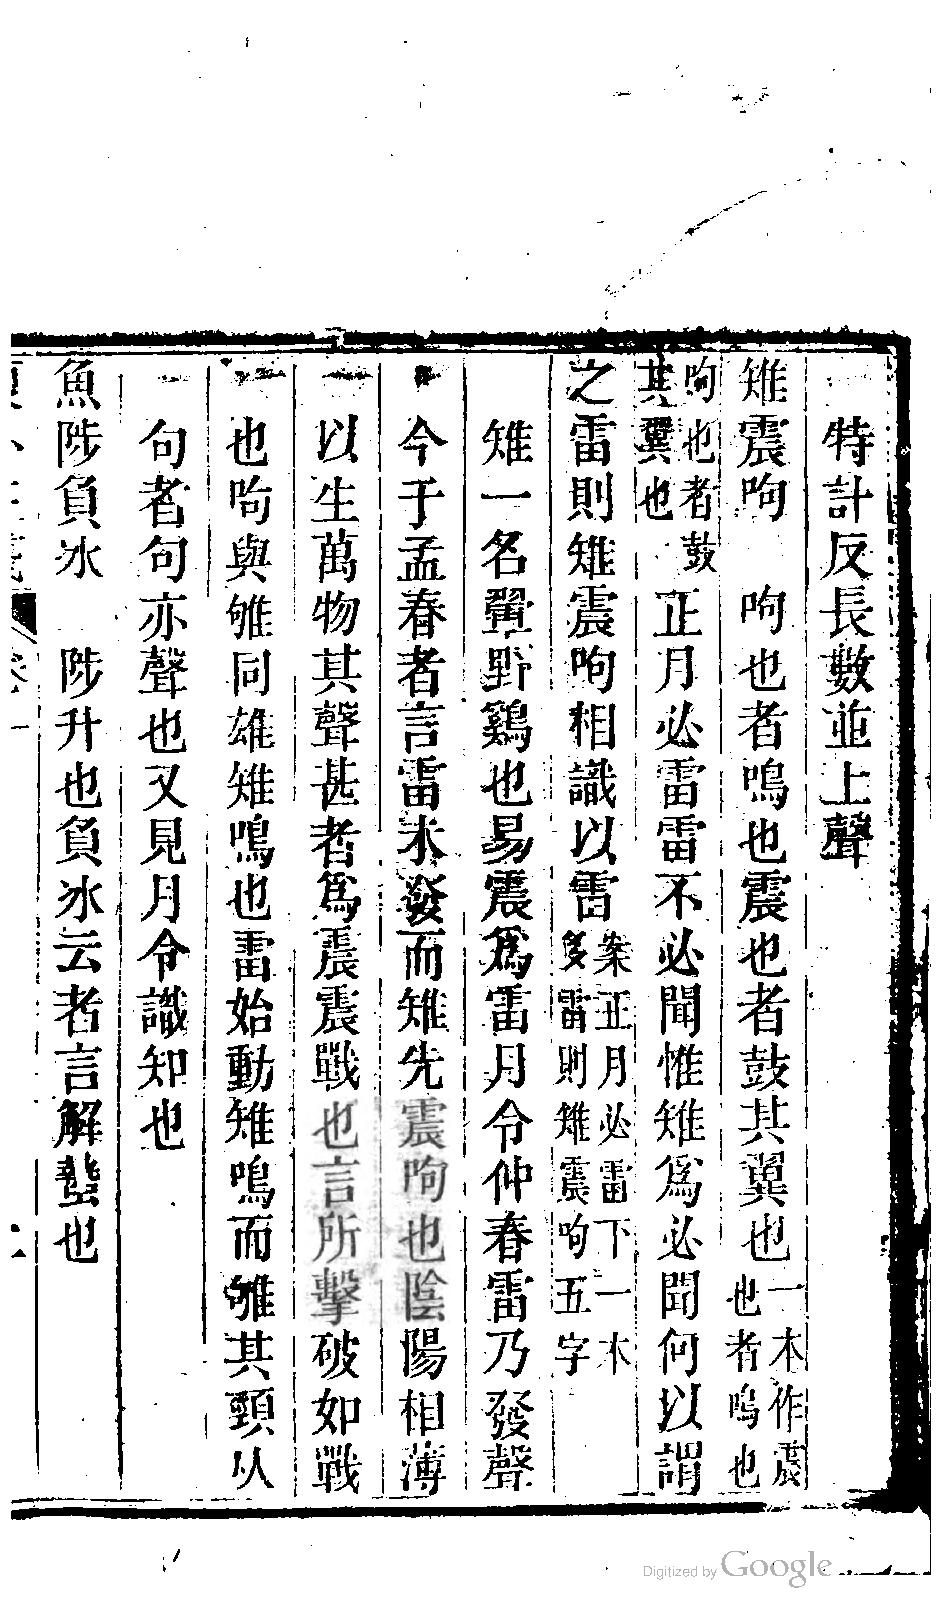 特計反長數並上聲
雉震呴　呴也者鳴也震也者鼓其翼也一本作震也者鳴也
呴也者鼓其翼也正月必雷雷不必聞惟雉爲必聞何以謂
之雷則雉震呴相識以雷案正月必雷下一本多雷則雉震呴五字
雉一名翬野鷄也易震爲雷月令仲春雷乃發聲
今于孟春者言雷未發而雉先震呴也陰陽相薄
以生萬物其聲甚者爲震震戰也言所擊破如戰
也呴與雊同雄雉鳴也雷始動雉鳴而雊其頸从
句者句亦聲也又見月令識知也
魚陟負冰　陟升也負冰云者言解蟄也
Digitized by Google